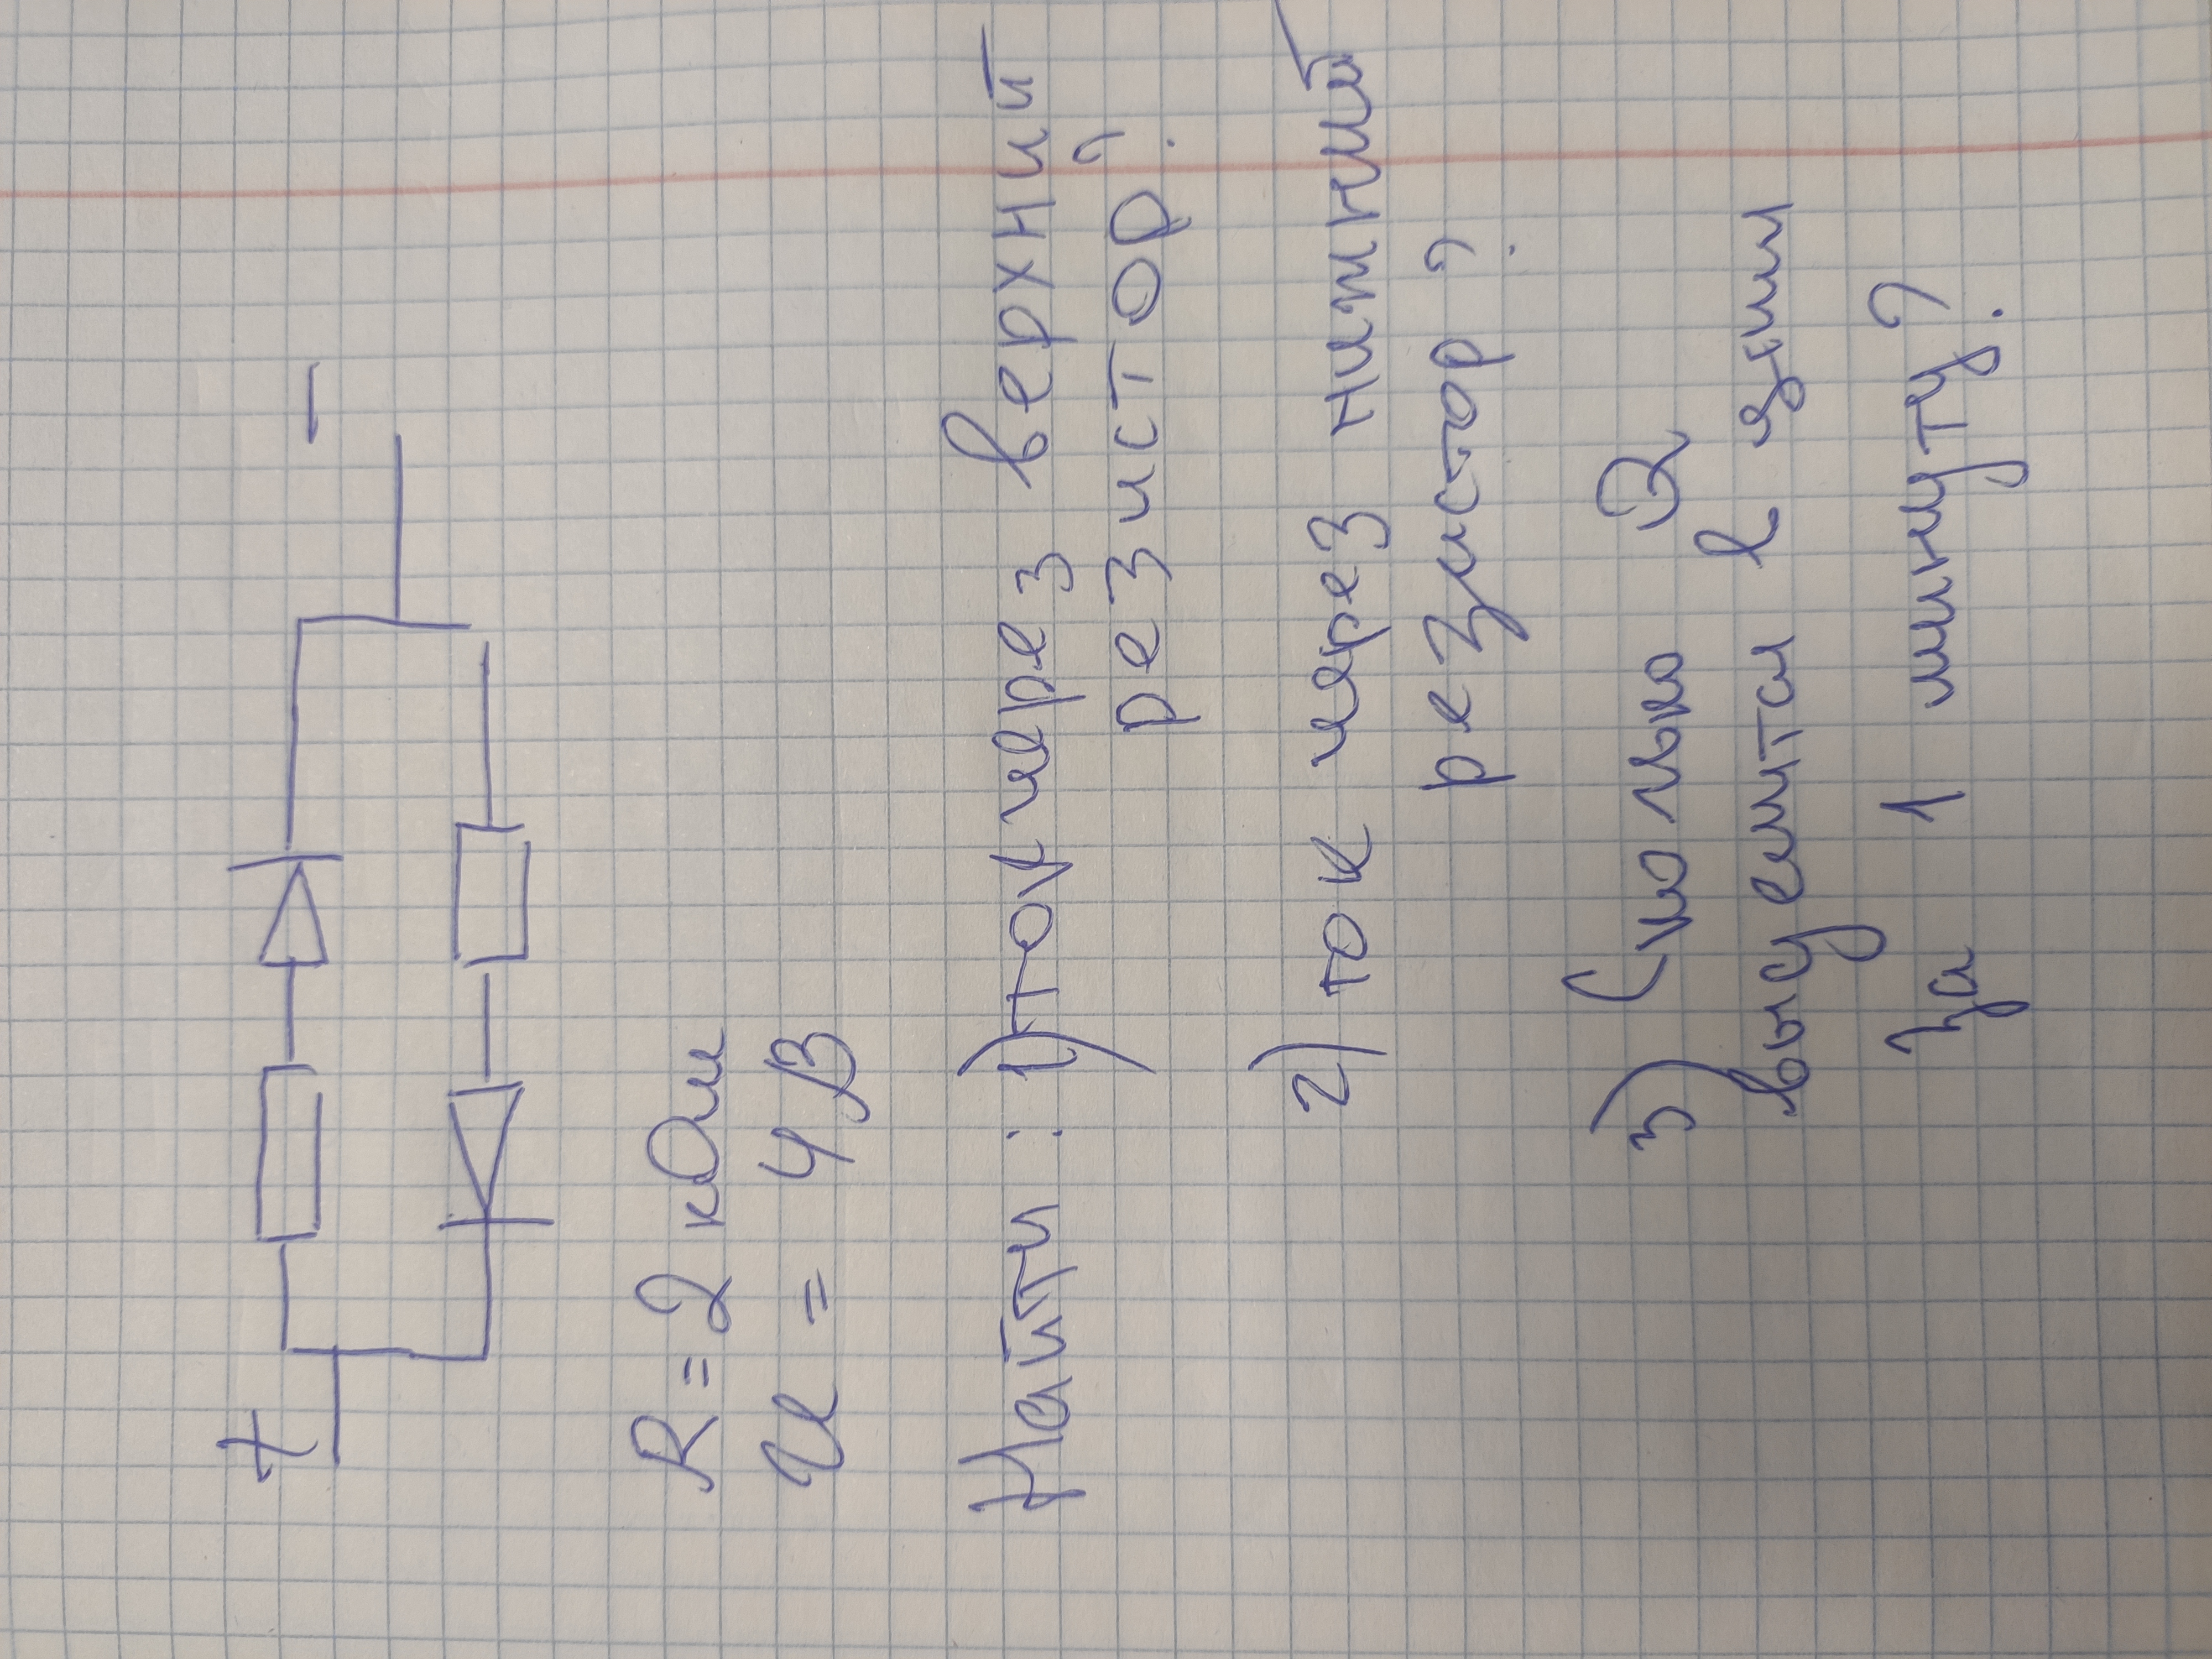 + −
R = 2 кОм
U = 4 В
Найти : 1) ток через верхний
резистор?
2) ток через нижний
резистор?
3) Сколько Q
выделится в цепи
за 1 минуту?